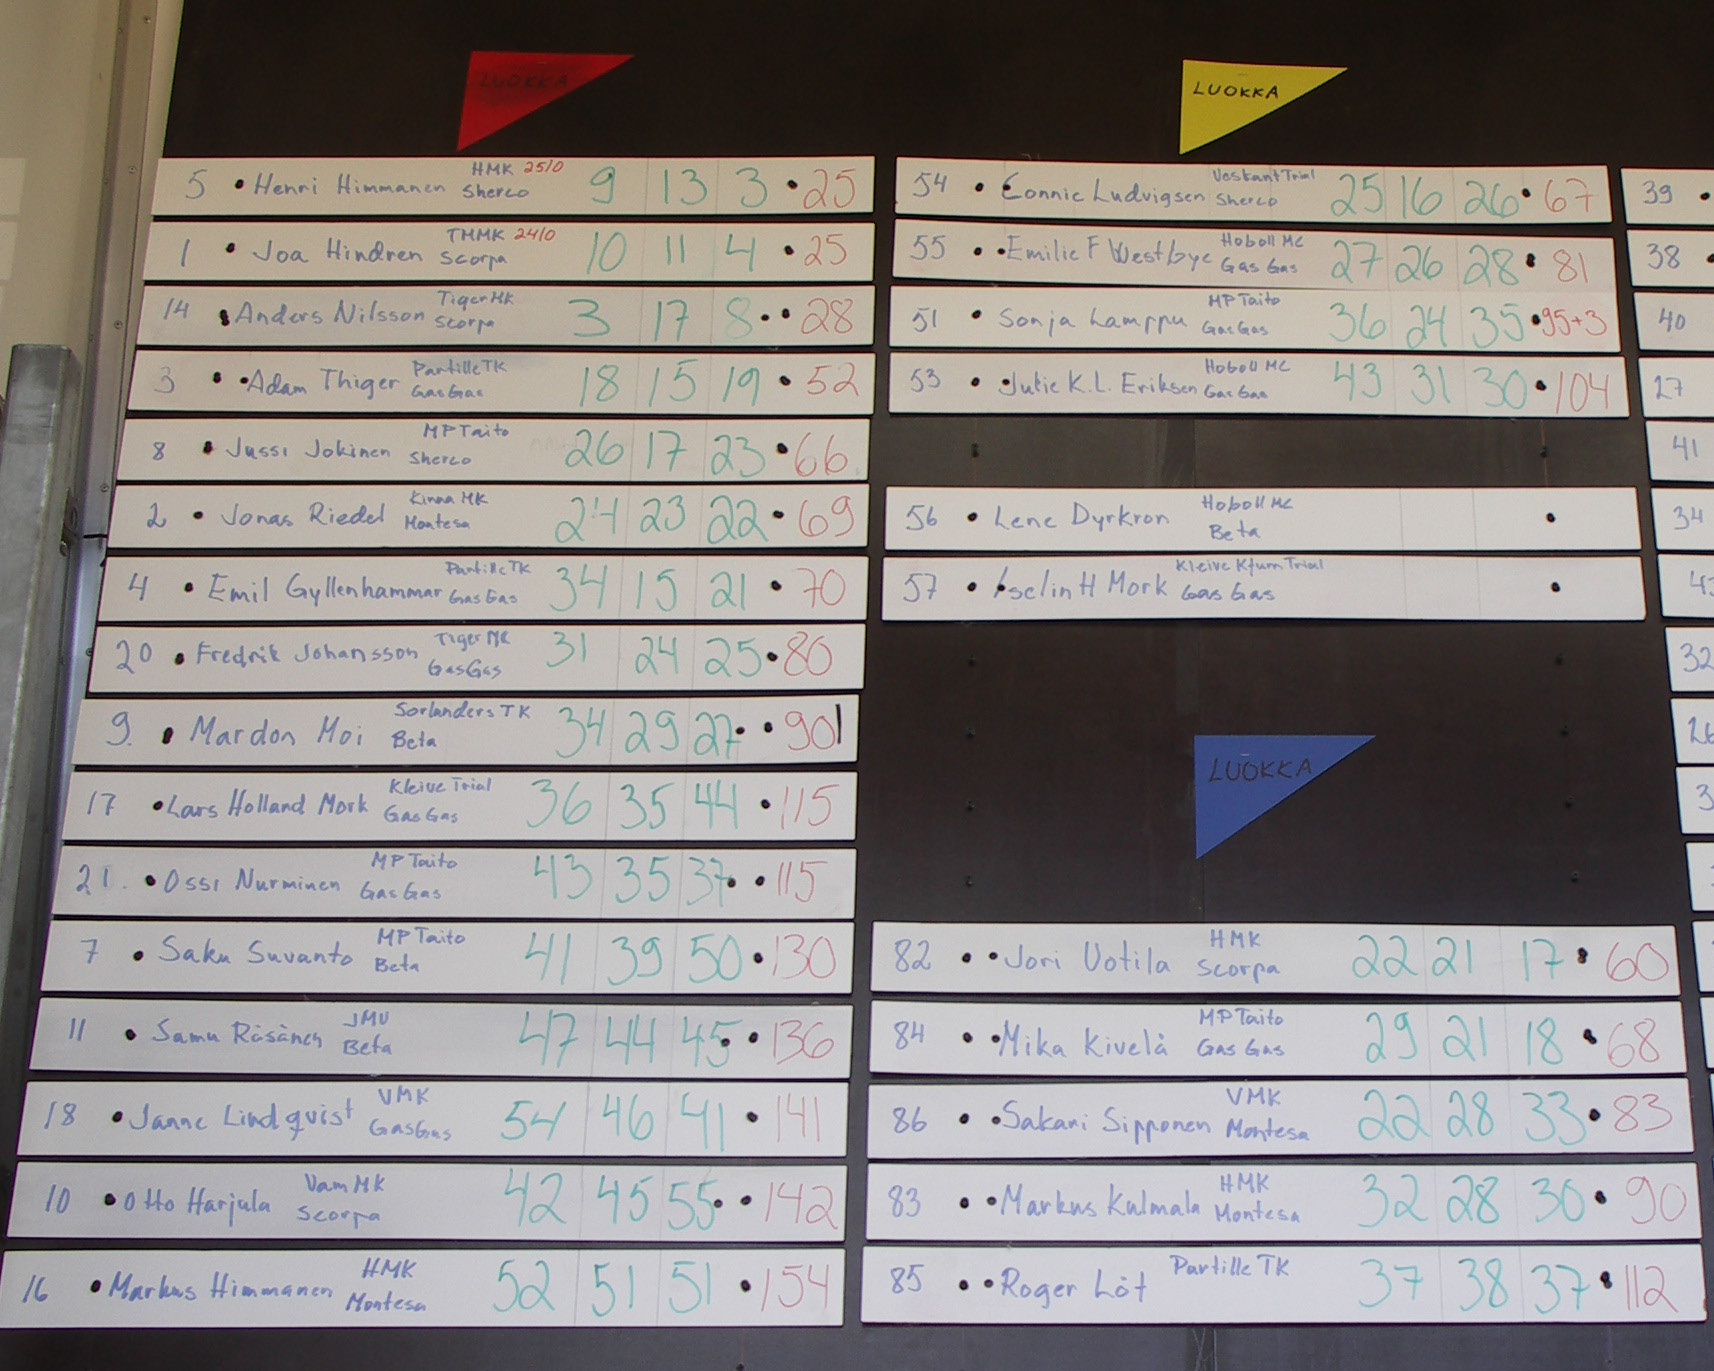 LUOKKA
HMK 25/0
5 Henri Himmanen Sherco 9 13 3 25
TMMK 24/0
1 Joa Hindren Scorpa 10 11 4 25
Tiger MK
14 Anders Nilsson Scorpa 3 17 8 28
Partille TK
3 Adam Thiger GasGas 18 15 19 52
MP Taito
8 Jussi Jokinen Sherco 26 17 23 66
Kinna MK
2 Jonas Riedel Montesa 24 23 22 69
Partille TK
4 Emil Gyllenhammar GasGas 34 15 21 70
Tiger MK
20 Fredrik Johansson GasGas 31 24 25 80
Sorlanders TK
9 Mardon Moi Beta 34 29 27 90
Kleive Trial
17 Lars Holland Mork GasGas 36 35 44 115
MP Taito
21 Ossi Nurminen Gas Gas 43 35 37 115
MP Taito
7 Saku Suvanto Beta 41 39 50 130
JMU
11 Samu Räsänen Beta 47 44 45 136
VMK
18 Janne Lindqvist GasGas 54 46 41 141
Vam MK
10 Otto Harjula Scorpa 42 45 55 142
HMK
16 Markus Himmanen Montesa 52 51 51 154
LUOKKA
Trial
54 Connie Ludvigsen Sherco 25 16 26 67
Hoboll MC
55 Emilie F Westbye Gas Gas 27 26 28 81
MP Taito
51 Sonja Lamppu GasGas 36 24 35 95+3
Hoboll MC
53 Julie K.L. Eriksen GasGas 43 31 30 104
Hoboll MC
56 Lene Dyrkron Beta
Kleive Trial
57 Iselin H Mork Gas Gas
LUOKKA
HMK
82 Jori Uotila Scorpa 22 21 17 60
MP Taito
84 Mika Kivelä Gas Gas 29 21 18 68
VMK
86 Sakari Sipponen Montesa 22 28 33 83
HMK
83 Markus Kulmala Montesa 32 28 30 90
Partille TK
85 Roger Löt 37 38 37 112
39
38
40
27
41
34
32